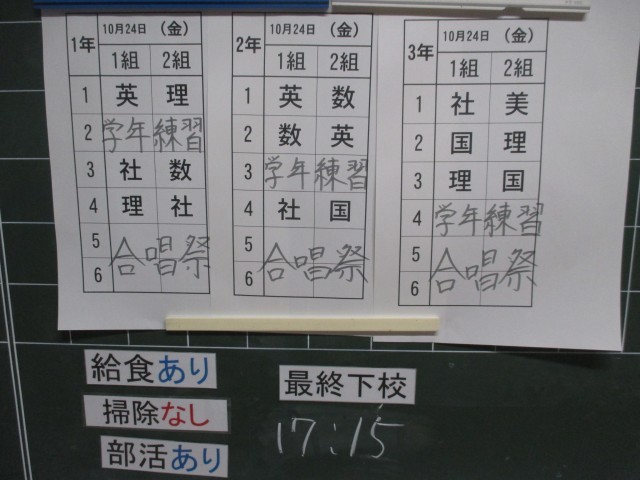 1年 10月24日 (金)
1組 2組
1 英 理
2 学年練習
3 社 数
4 理 社
5
合唱祭
6
2年 10月24日 (金)
1組 2組
1 英 数
2 数 英
3 学年練習
4 社 国
5
合唱祭
6
3年 10月24日 (金)
1組 2組
1 社 美
2 国 理
3 理 国
4 学年練習
5
合唱祭
6
給食あり
掃除なし
部活あり
最終下校
17:15